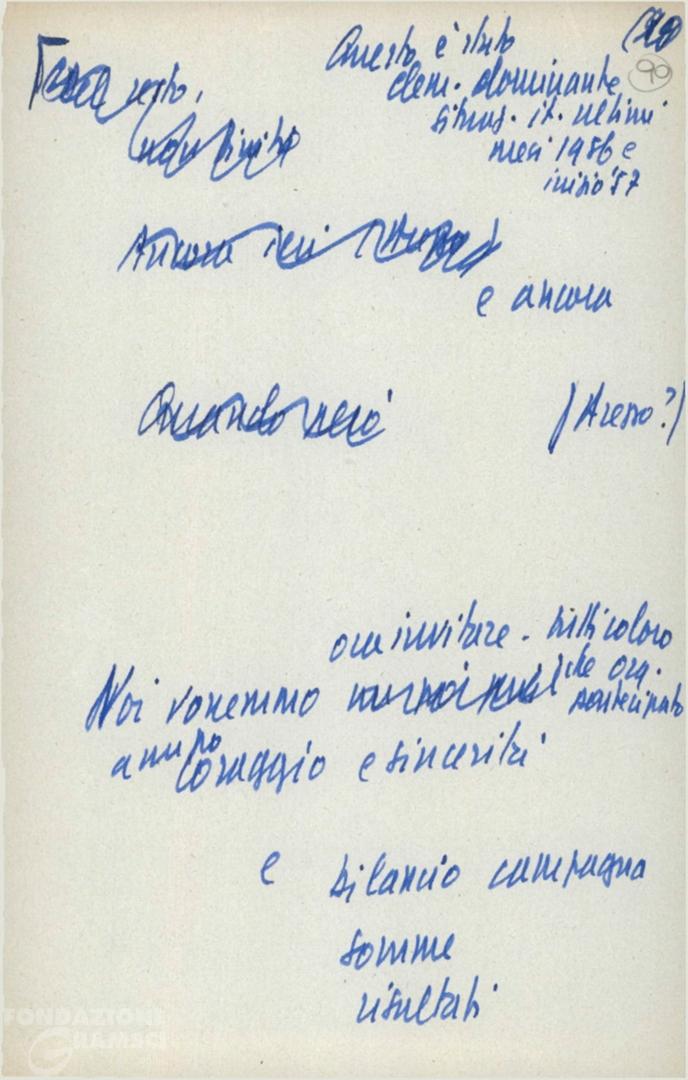 90
Questo è stato
elem. dominante
situaz. it. ultimi
mesi 1956 e
inizio '57
resto,
Ancora ieri
e ancora
Quando però
(Arezzo?)
ora invitare. tutti coloro
che ora.
Noi vorremmo
partecipato
a un po'
coraggio e sincerità
e bilancio campagna
somme
risultati
FONDAZIONE
GRAMSCI